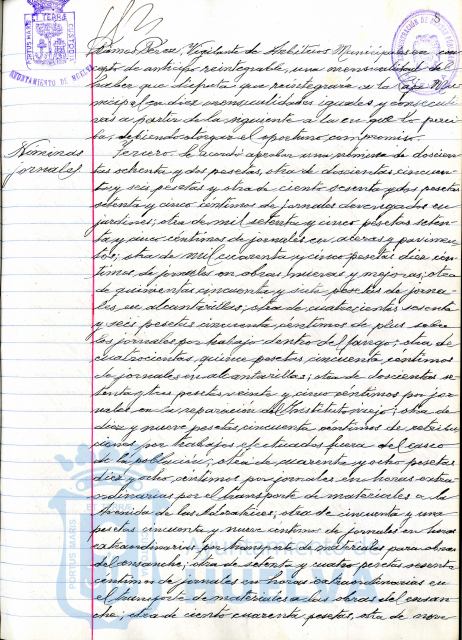 PORTUS MARIS ET TERRAE CUSTODIA
AYUNTAMIENTO DE HUELVA
5
Ramos Pérez, Vigilante de Arbitrios Municipales en con-
cepto de anticipo reintegrable, una mensualidad del
haber que disfruta que reintegrará a la Caja Mu-
nicipal en diez mensualidades iguales y consecuti-
vas a partir de la siguiente a la en que la perci-
ba, debiendo otorgar el oportuno compromiso.
Nóminas
jornales
Tercero. Se acordó aprobar una nómina de doscien-
tas ochenta y dos pesetas, otra de doscientas cincuen-
ta y seis pesetas y otra de ciento sesenta y dos pesetas
setenta y cinco céntimos de jornales devengados en
jardines; otra de mil setenta y cinco pesetas seten-
ta y cinco céntimos de jornales en aceras y pavimen-
tos; otra de mil cuarenta y cinco pesetas diez cén-
timos, de jornales en obras nuevas y mejoras; otra
de quinientas cincuenta y siete pesetas de jorna-
les en alcantarillas; otra de cuatrocientas sesenta
y seis pesetas cincuenta céntimos de plus sobre
los jornales por trabajo dentro del fango; otra de
cuatrocientas quince pesetas cincuenta céntimos
de jornales en alcantarillas; otra de doscientas se-
tenta y tres pesetas veinte y cinco céntimos por jor-
nales en la reparación del Instituto viejo; otra de
diez y nueve pesetas cincuenta céntimos de retribu-
ciones por trabajos efectuados fuera del casco
de la población; otra de cuarenta y ocho pesetas
diez y ocho céntimos por jornales en horas extra-
ordinarias por el transporte de materiales a la
Avenida de los Adoratrices; otra de cincuenta y una
pesetas cincuenta y nueve céntimos de jornales en horas
extraordinarias por transporte de materiales para obras
del ensanche; otra de setenta y cuatro pesetas sesenta
céntimos de jornales en horas extraordinarias en
el transporte de materiales a las obras del ensan-
che; otra de ciento cuarenta pesetas, otra de nove
PORTUS MARIS
Ayuntamiento de
HUELVA